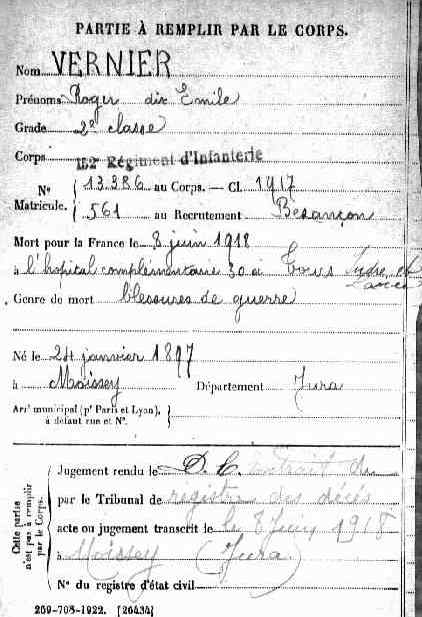 PARTIE À REMPLIR PAR LE CORPS.
Nom VERNIER
Prénoms Roger dix Emile
Grade 2e classe
Corps 152 Régiment d'Infanterie
N° 13.386 au Corps. — Cl. 1917
Matricule. 561 au Recrutement Besançon
Mort pour la France le 8 juin 1918
à l'hopital complémentaire 30 à Tours Indre et Loire
Genre de mort blessures de guerre
Né le 24 janvier 1897
à Moissey Département Jura
Arr' municipal (p' Paris et Lyon),
à défaut rue et N°.
Cette partie
n'est pas à remplir
par le Corps.
Jugement rendu le D. C. extrait du
par le Tribunal de registre des décès
acte ou jugement transcrit le le 8 Juin 1918
à Moissey (Jura)
N° du registre d'état civil
259-708-1922. [26434]